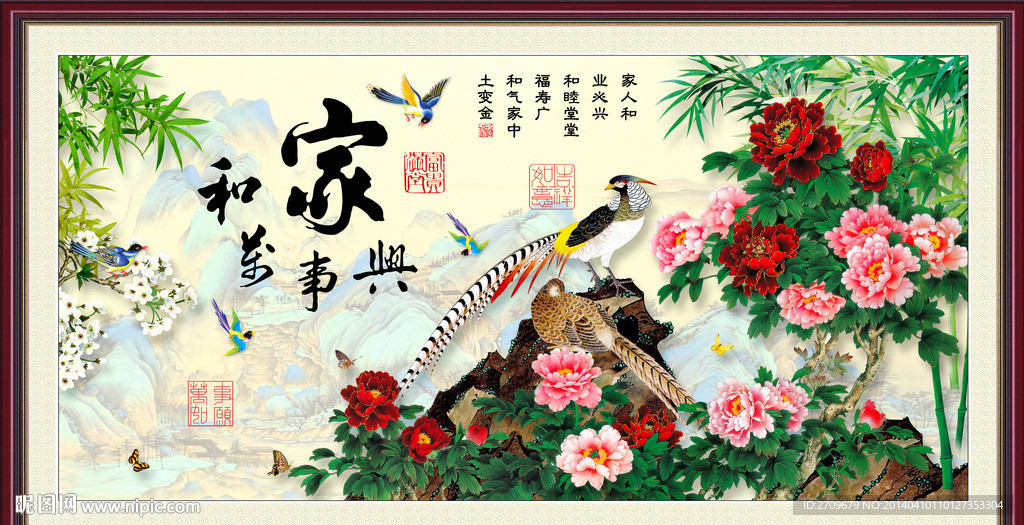 家和萬事興
家人和
业必兴
和睦堂堂
福寿广
和气家中
土变金
富贵满堂
吉祥如意
萬事如願
昵图网 www.nipic.com
ID:2709679 NO:20140410110127353304